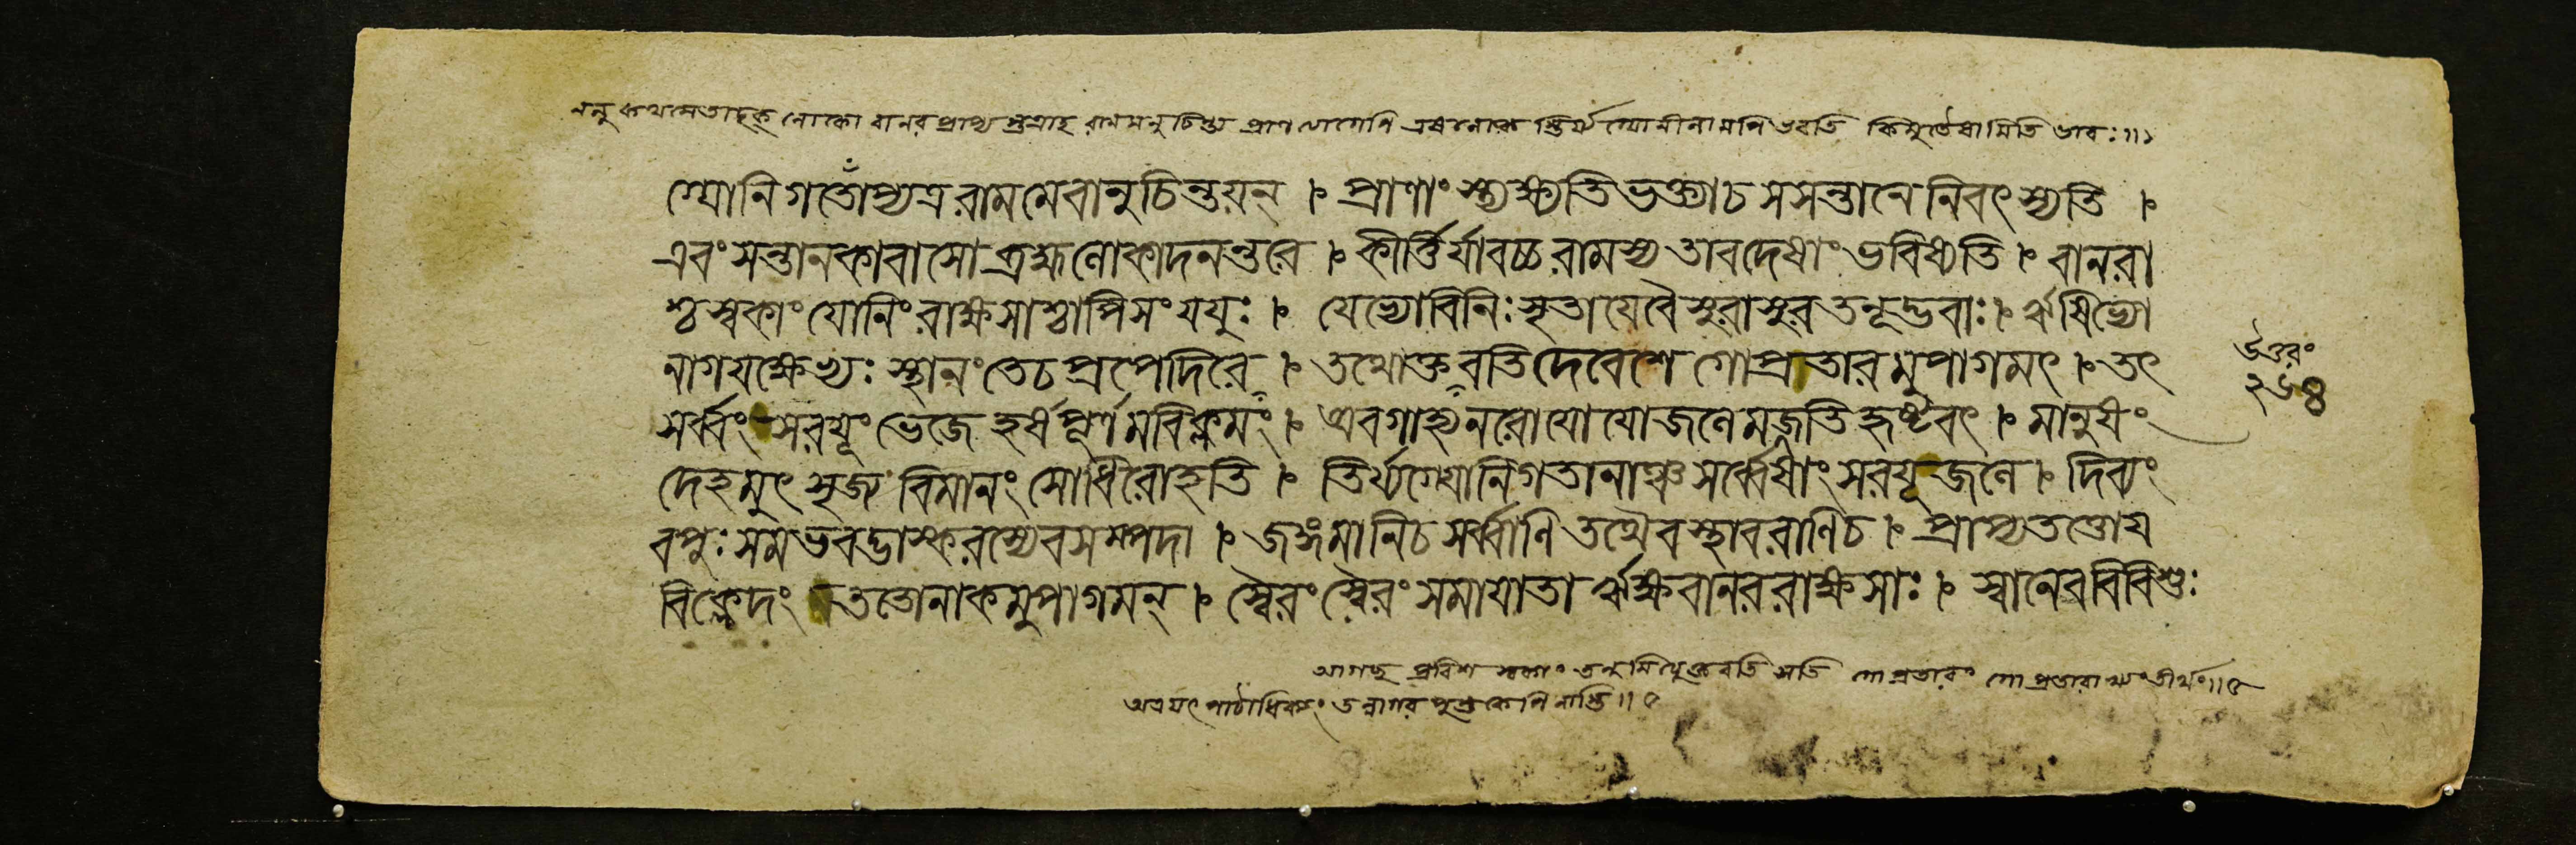 ননু কথমেতাদৃক্ লোকো বানর প্রাপ্য স্তত্রাহ রামমনুচিন্ত্য প্রাণত্যাগেপি ভবতি কিমুতৈষামিতি ভাবঃ॥১
গ্যোনিগতোঁপ্যত্ররামমেবানুচিন্তয়ন্ । প্রাণাংস্ত্যক্ষ্যতিভক্ত্যাচসসন্তানেনিবৎস্যতি ।
এবংসন্তানকাবাসোব্রহ্মলোকাদনন্তরে । কীর্ত্তির্যাবচ্চরামস্যতাবদেষাংভবিষ্যতি । বানরা
শ্চস্বকাংযোনিংরাক্ষসাশ্চাপিসংযযুঃ । যেভ্যোবিনিঃসৃতাযেবৈসুরাসুরতনূদ্ভবাঃ । ঋষিভ্যো
নাগযক্ষেভ্যঃস্থানংতেচপ্রপেদিরে । তথোক্তবতিদেবেশেগোপ্রতারমুপাগমৎ । তৎ
উত্তরং
২৬৪
সর্ব্বংসরযূংভেজেহর্ষপূর্ণমবিক্লমং । অবগাহ্যনরোযোযোজলেমজ্জতিহৃষ্টবৎ । মানুষং
দেহমুৎসৃজ্য বিমানংসোধিরোহতি । তির্য্যগ্যোনিগতানাঞ্চসর্ব্বেষাংসরযূজলে । দিব্যং
বপুঃসমভবদ্ভাস্করস্যেবসম্পদা । জঙ্গমানিচসর্ব্বাণিতথৈবস্থাবরাণিচ । প্রাপ্যতত্তোয়
বিক্লেদং ততোনাকমুপাগমন্ । স্বৈরংস্বৈরংসমাযাতাঋক্ষবানররাক্ষসাঃ । স্বানেববিবিশুঃ
আগচ্ছ প্রবিশ স্বকাং তনুমিত্যুক্তবতি সতি গোপ্রতারং গোপ্রতারাখ্যং তীর্থং॥৫
অত্রযৎ পাঠাধিক্যং তন্নাগর পুস্তকেপি নাস্তি॥৫